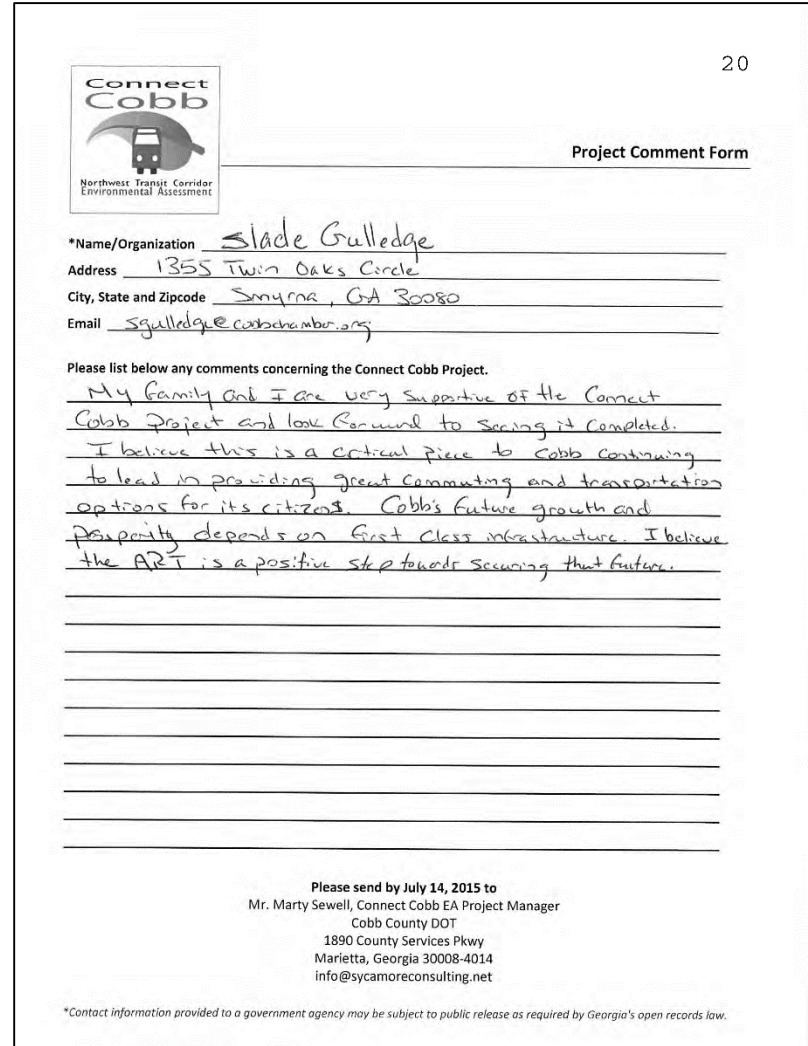 20
Connect
Cobb
Northwest Transit Corridor
Environmental Assessment
Project Comment Form
*Name/Organization Slade Gulledge
Address 1355 Twin Oaks Circle
City, State and Zipcode Smyrna, GA 30080
Email sgulledge@cobbchamber.org
Please list below any comments concerning the Connect Cobb Project.
My Family and I are very supportive of the Connect
Cobb Project and look forward to seeing it completed.
I believe this is a crtical piece to Cobb continuing
to lead in providing great commuting and transportation
options for its citizens. Cobb's future growth and
Posperity depends on first class infrastructure. I believe
the ART is a positive step towards securing that future.
Please send by July 14, 2015 to
Mr. Marty Sewell, Connect Cobb EA Project Manager
Cobb County DOT
1890 County Services Pkwy
Marietta, Georgia 30008-4014
info@sycamoreconsulting.net
*Contact information provided to a government agency may be subject to public release as required by Georgia's open records law.